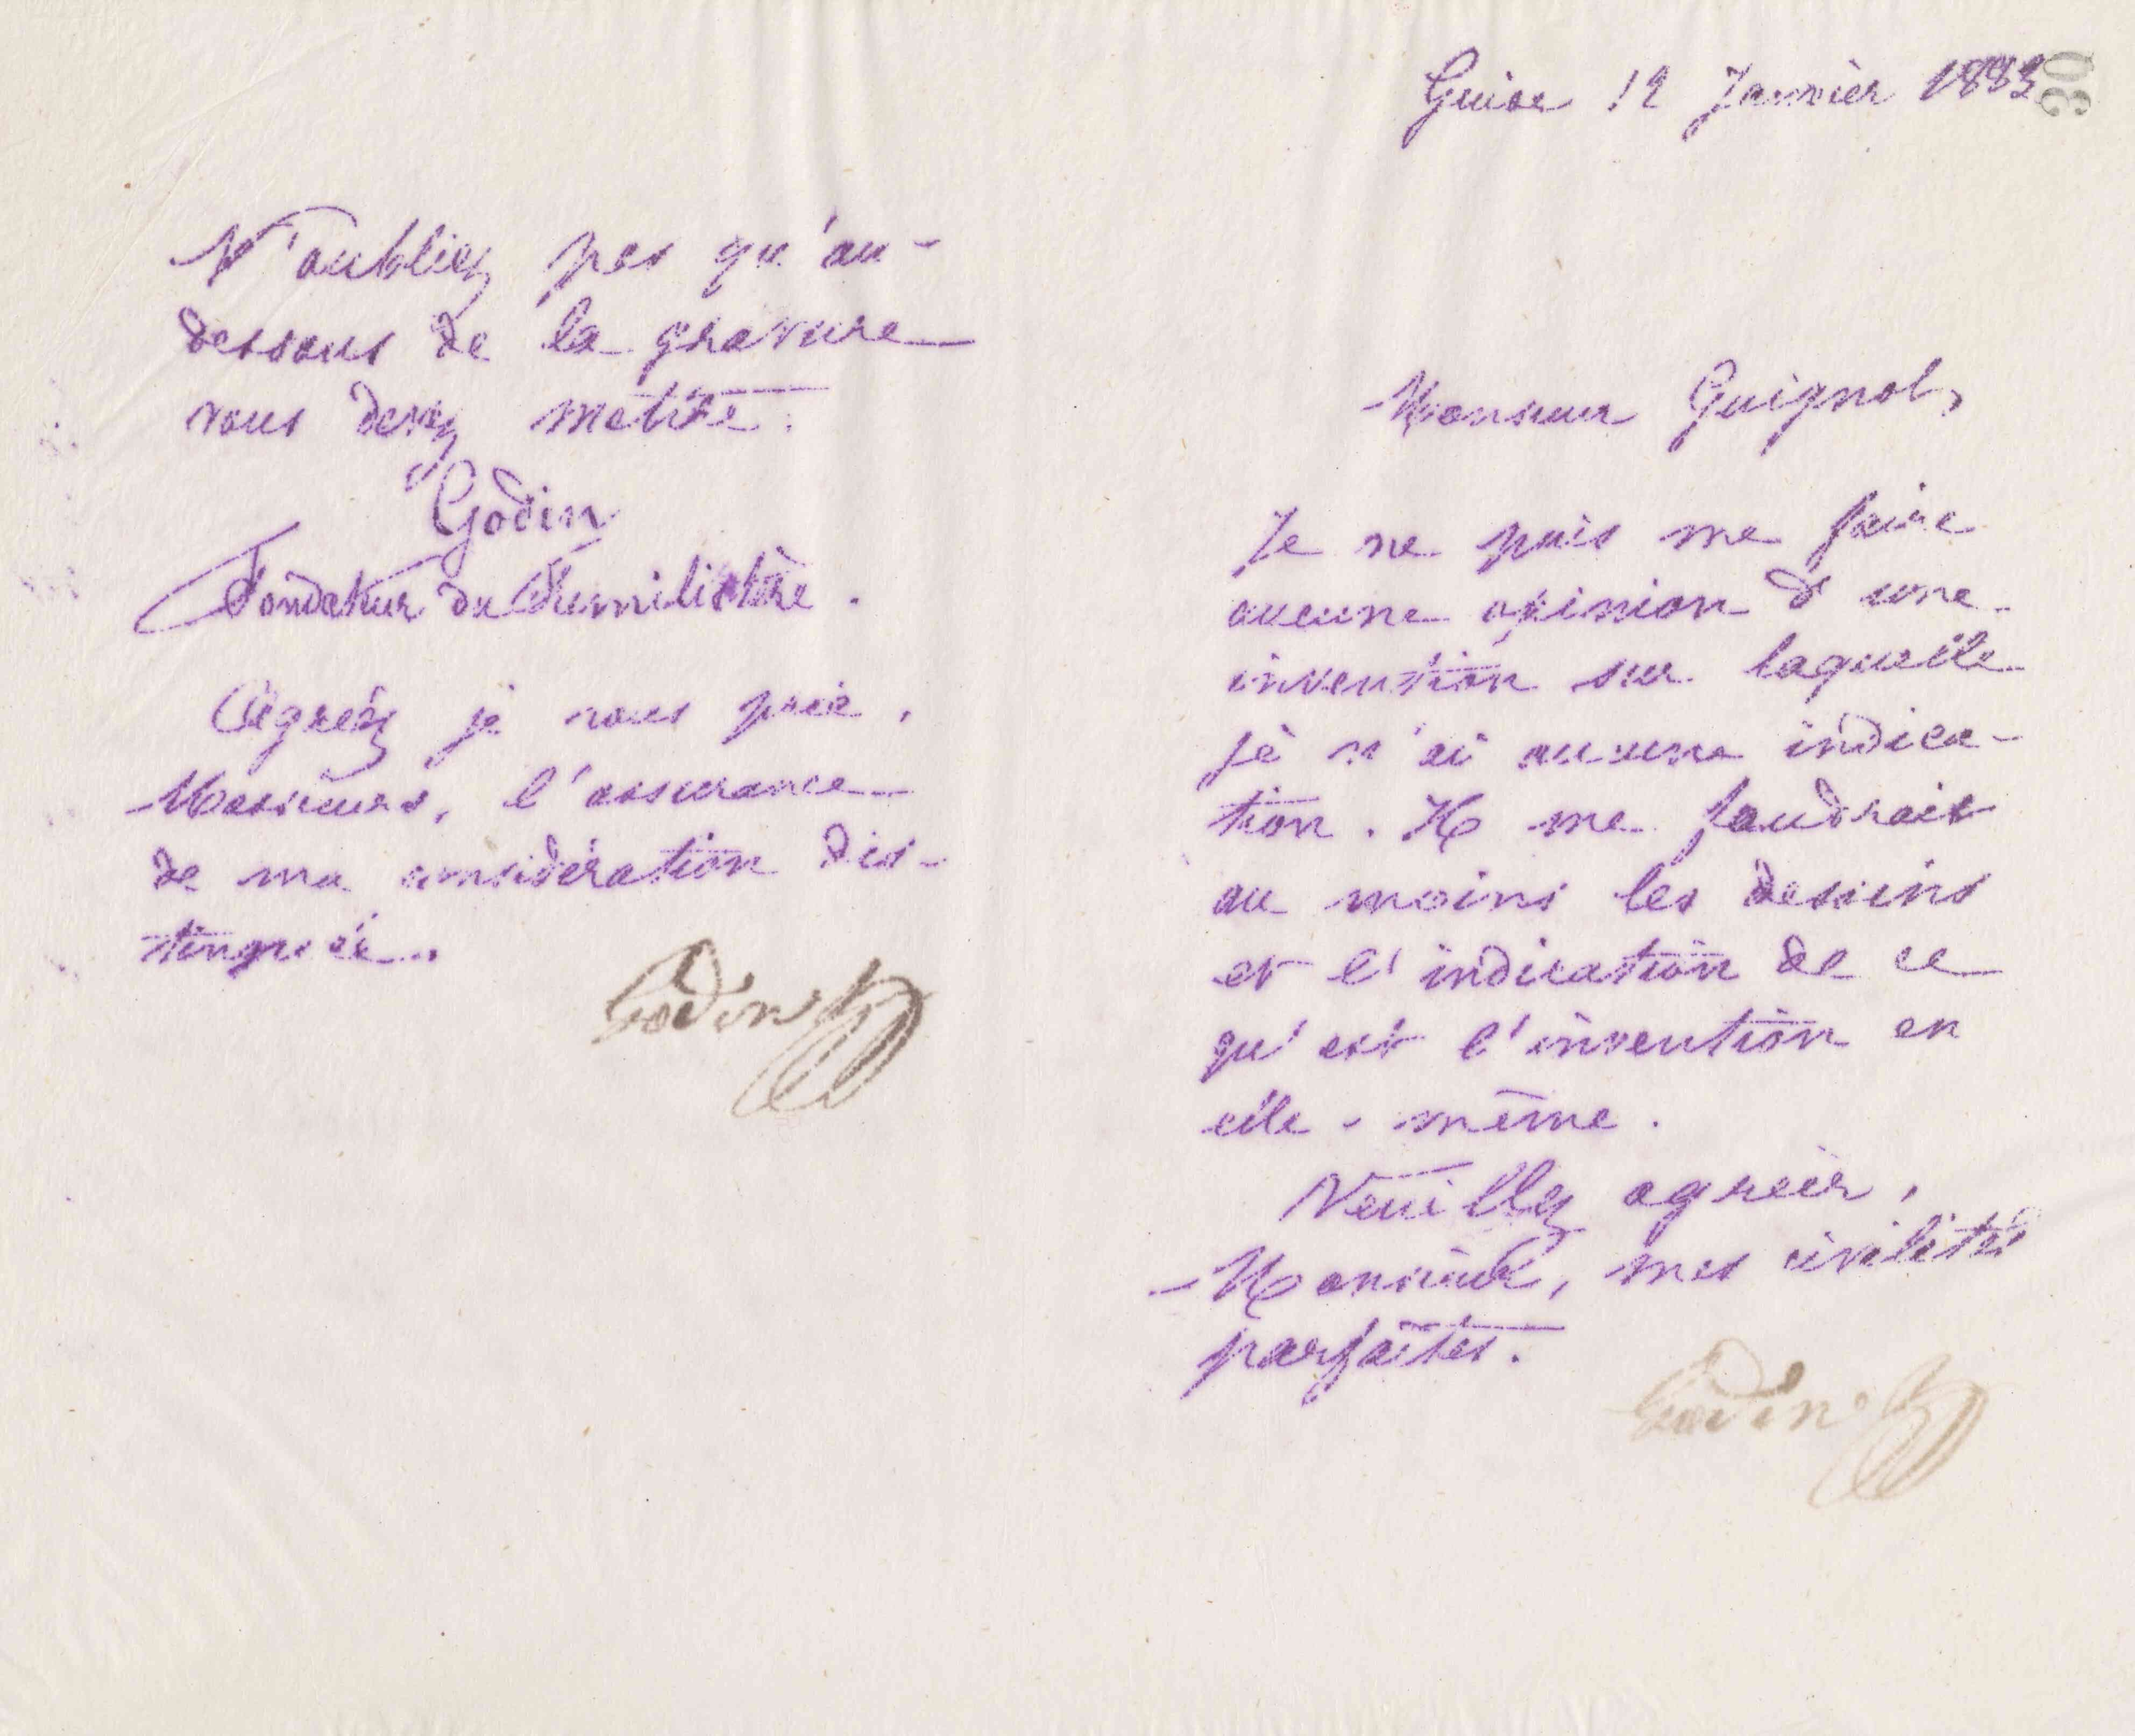 N'oubliez pas qu'au-
dessous de la gravure
vous devez mettre :
Godin
Fondateur du Familistère.
Agréez je vous prie,
Messieurs, l'assurance
de ma considération dis-
tinguée.
Godin
30
Guise 12 Janvier 1883
Monsieur Guignol,
Je ne puis me faire
aucune opinion d'une
invention sur laquelle
je n'ai aucune indica-
tion. Il me faudrait
au moins les dessins
et l'indication de ce
qu'est l'invention en
elle-même.
Veuillez agréer,
Monsieur, mes civilités
parfaites.
Godin